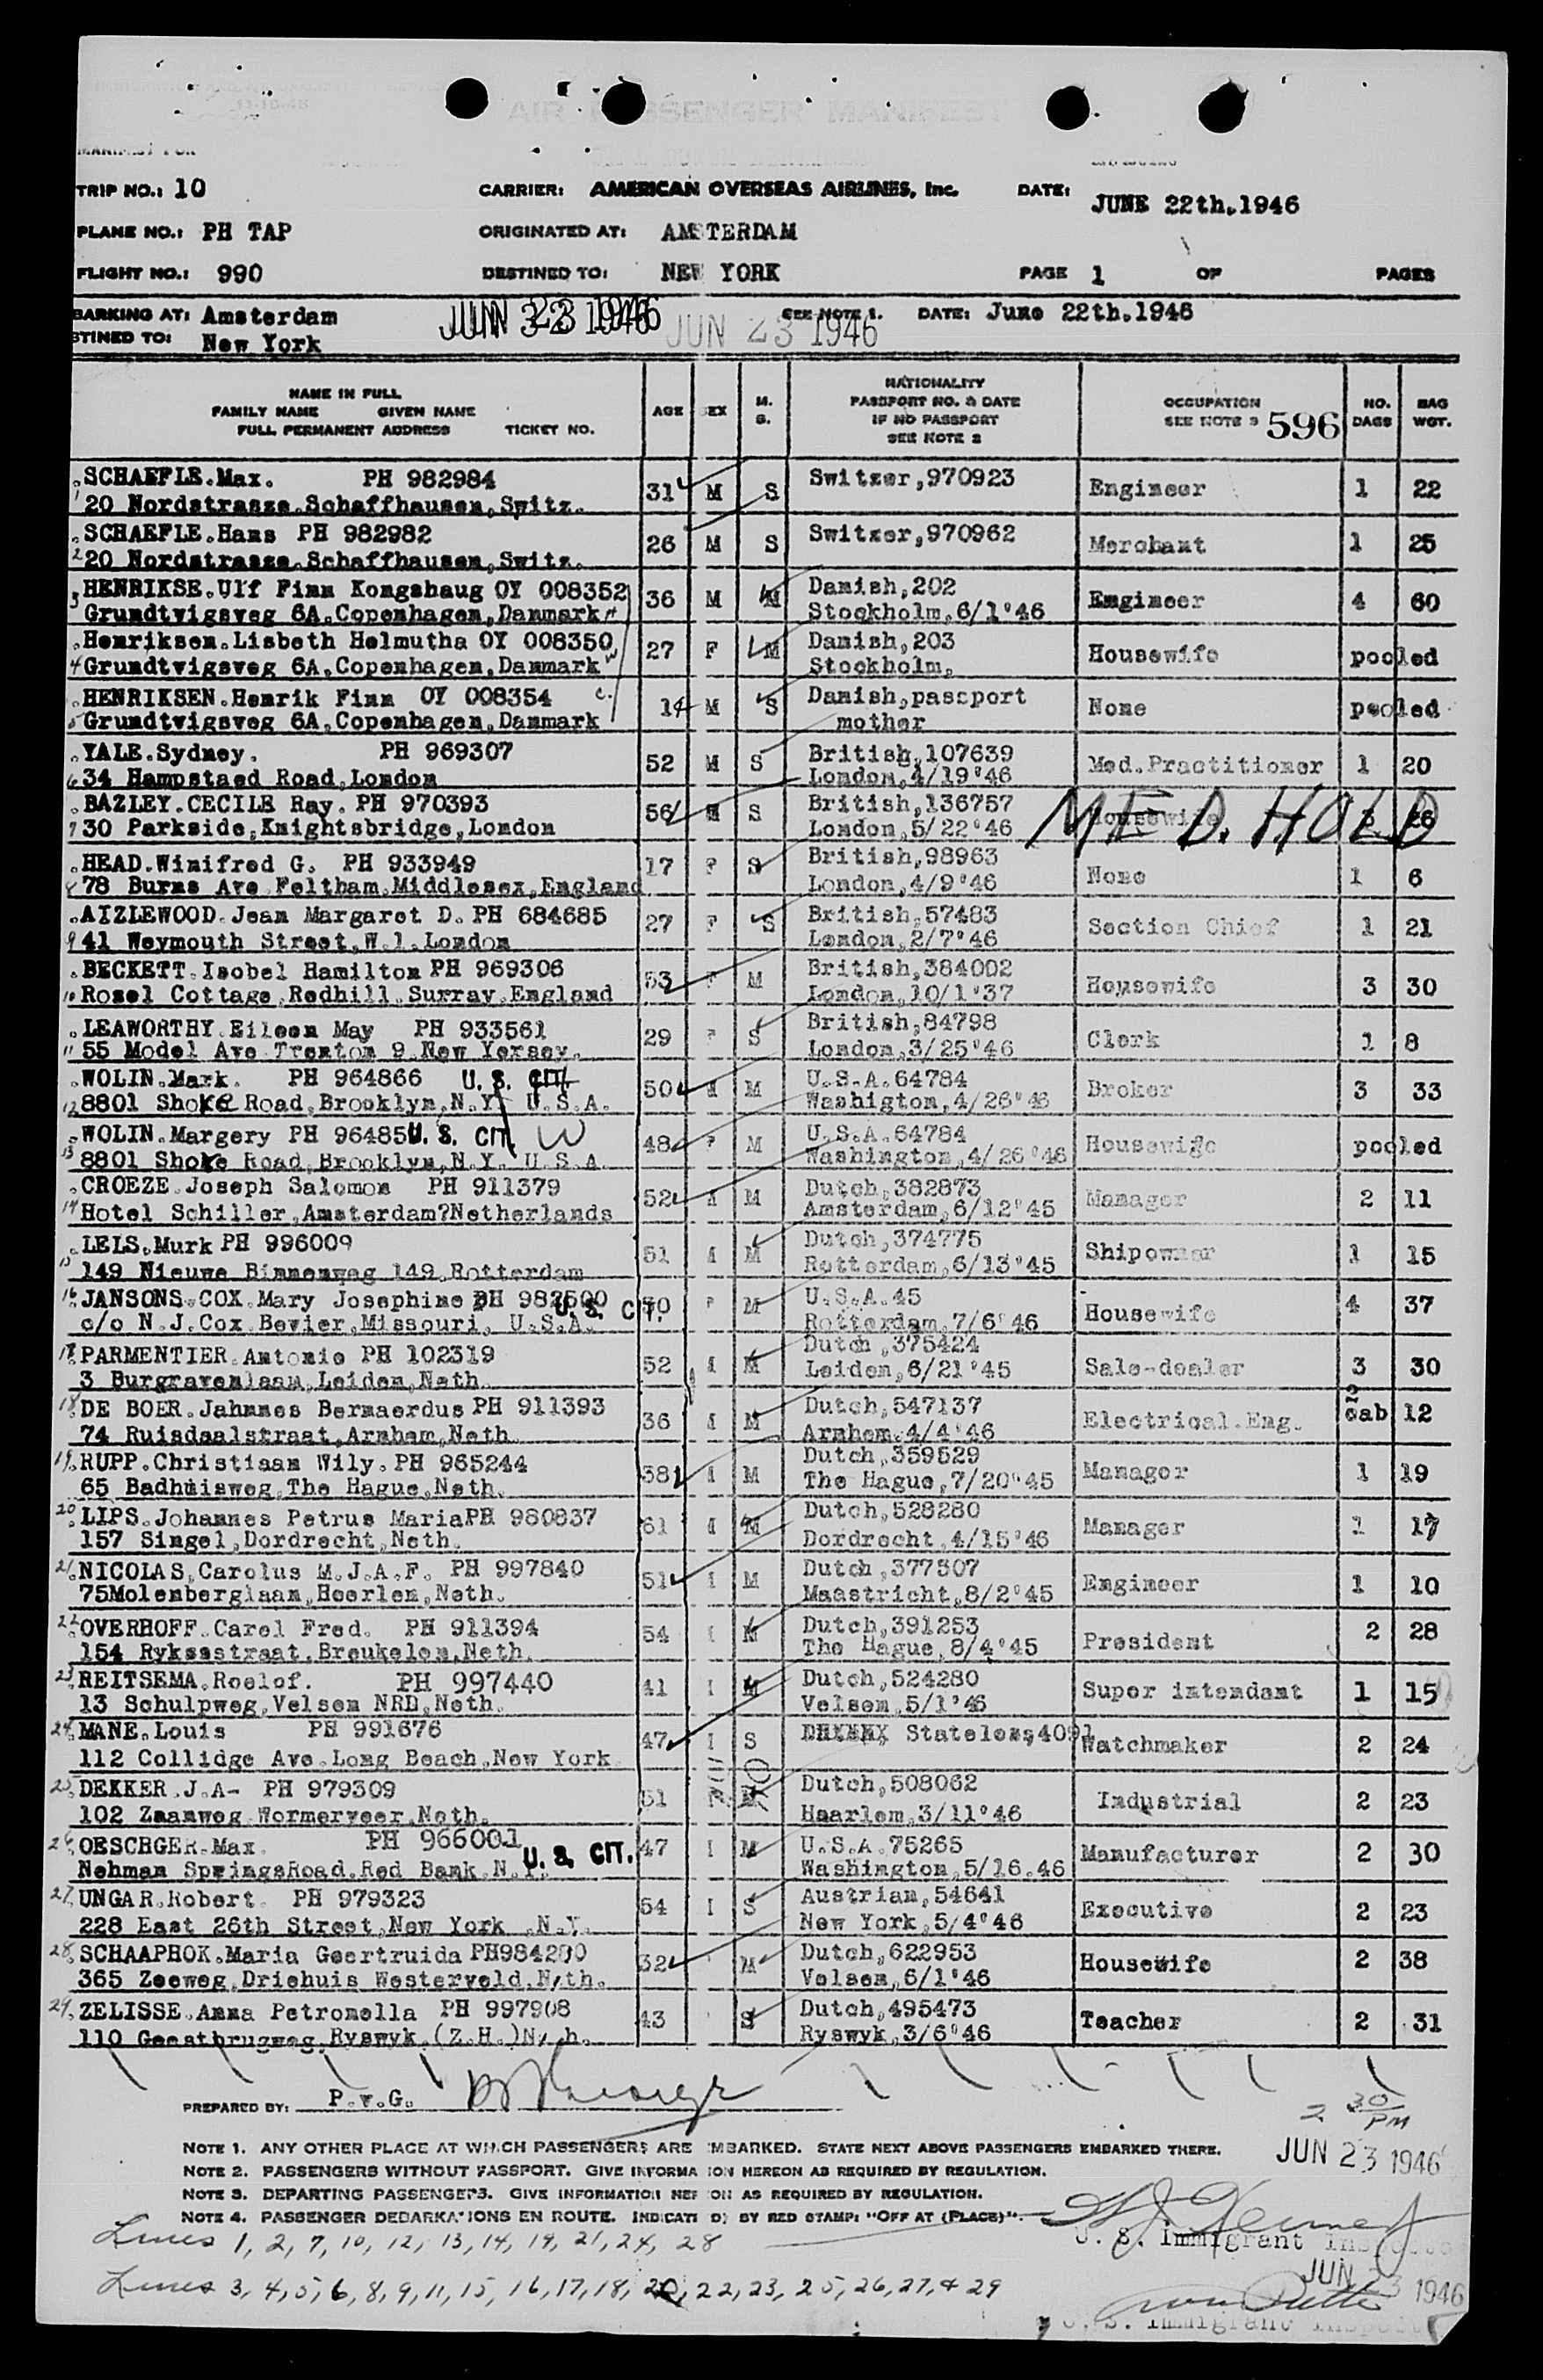 TRIP NO.: 10 CARRIER: AMERICAN OVERSEAS AIRLINES, Inc. DATE: JUNE 22th.1946
PLANE NO.: PH TAP ORIGINATED AT: AMSTERDAM
FLIGHT NO.: 990 DESTINED TO: NEW YORK PAGE 1 OF PAGES
BARKING AT: Amsterdam SEE NOTE 1. DATE: June 22th.1946
JUN 23 1946
STINED TO: New York
NAME IN FULL
FAMILY NAME GIVEN NAME
FULL PERMANENT ADDRESS TICKET NO.
AGE SEX M. S.
NATIONALITY
PASSPORT NO. & DATE
IF NO PASSPORT
SEE NOTE 2
OCCUPATION
SEE NOTE 3 596
NO. BAGS BAG WGT.
1 SCHAEFLE.Max. PH 982984 31 M S Switzer,970923 Engineer 1 22
20 Nordstrasze.Schaffhausen,Switz.
2 SCHAEFLE.Hans PH 982982 26 M S Switzer,970962 Merchant 1 25
20 Nordstrasze.Schaffhausen,Switz.
3 HENRIKSE.Ulf Finn Kongshaug OY 008352 36 M M Danish,202 Engineer 4 60
Grundtvigsveg 6A.Copenhagen,Danmark Stockholm,6/1'46
4 Henriksen.Lisbeth Helmutha OY 008350 27 F M Danish,203 Housewife pooled
Grundtvigsveg 6A.Copenhagen,Danmark Stockholm,
5 HENRIKSEN.Henrik Finn OY 008354 c. 14 M S Danish,passport None pooled
Grundtvigsveg 6A.Copenhagen,Danmark mother
6 YALE.Sydney. PH 969307 52 M S British,107639 Med.Practitioner 1 20
34 Hampstaed Road,London London,4/19'46
7 BAZLEY.CECILE Ray. PH 970393 56 S British,136757 Housewife 26
MED. HOLD
30 Parkside,Knightsbridge,London London,5/22'46
8 HEAD.Winifred G. PH 933949 17 F S British,98963 None 1 6
78 Burns Ave.Feltham.Middlesex,England London,4/9'46
9 AIZLEWOOD.Jean Margaret D. PH 684685 27 F S British,57483 Section Chief 1 21
41 Weymouth Street,W.1.London London,2/7'46
10 BECKETT.Isobel Hamilton PH 969306 53 F M British,384002 Housewife 3 30
Rosel Cottage,Redhill.Surray.England London,10/1'37
11 LEAWORTHY.Eileen May PH 933561 29 F S British,84798 Clerk 1 8
55 Model Ave Trenton 9.New Yersey. London,3/25'46
12 WOLIN.Mark. PH 964866 U. S. CIT. 50 M U.S.A.64784 Broker 3 33
8801 Shore Road,Brooklyn,N.Y. U.S.A. Washigton,4/26'46
13 WOLIN.Margery PH 96485 U. S. CIT. W 48 F M U.S.A.64784 Housewife pooled
8801 Shore Road,Brooklyn,N.Y. U.S.A. Washington,4/26'46
14 CROEZE.Joseph Salomon PH 911379 52 M Dutch,382873 Manager 2 11
Hotel Schiller,Amsterdam?Netherlands Amsterdam,6/12'45
15 LELS.Murk PH 996009 51 M Dutch,374775 Shipowner 1 15
149 Nieuwe Binnenweg 149.Rotterdam Rotterdam,6/13'45
16 JANSONS.COX.Mary Josephine PH 982500 U. S. CIT. F M U.S.A.45 Housewife 4 37
c/o N.J.Cox.Bevier,Missouri, U.S.A. Rotterdam,7/6'46
17 PARMENTIER.Antonie PH 102319 52 M Dutch,375424 Sale-dealer 3 30
3 Burgravenlaan,Leiden,Neth. Leiden,6/21'45
18 DE BOER.Jahnnes Bernaerdus PH 911393 36 M Dutch,547137 Electrical.Eng. 2 cab 12
74 Ruisdaalstraat,Arnhem,Neth. Arnhem.4/4'46
19 RUPP.Christiaan Wily. PH 965244 38 M Dutch,359529 Manager 1 19
65 Badhuisweg,The Hague,Neth. The Hague,7/20'45
20 LIPS.Johannes Petrus Maria PH 980837 61 M Dutch,528280 Manager 1 17
157 Singel,Dordrecht,Neth. Dordrecht,4/15'46
21 NICOLAS,Carolus M.J.A.F. PH 997840 51 M Dutch,377307 Engineer 1 10
75Molenberglaan,Heerlen,Neth. Maastricht,8/2'45
22 OVERHOFF.Carel Fred. PH 911394 54 M Dutch,391253 President 2 28
154 Ryksestraat,Breukelen.Neth. The Hague,8/4'45
23 REITSEMA.Roelof. PH 997440 41 M Dutch,524280 Super intendant 1 15
13 Schulpweg,Velsen NRD,Neth. Velsen,5/1'46
24 MANE.Louis PH 991676 47 S Stateless,4091 Watchmaker 2 24
112 Collidge Ave.Long Beach.New York
25 DEKKER.J.A- PH 979309 51 Dutch,508062 Industrial 2 23
102 Zaanweg Wormerveer,Neth. Haarlem,3/11'46
26 OESCHGER.Max. PH 966001 U. S. CIT. 47 M U.S.A.75265 Manufacturer 2 30
Nehman SpringsRoad.Red Bank.N.Y. Washington,5/16.46
27 UNGAR.Robert. PH 979323 54 S Austrian,54641 Executive 2 23
228 East 26th Street,New York ,N.Y. New York,5/4'46
28 SCHAAPHOK.Maria Geertruida PH984200 32 M Dutch,622953 Housewife 2 38
365 Zeeweg,Driehuis Westerveld,Neth. Velsen,6/1'46
29 ZELISSE.Anna Petronella PH 997908 43 S Dutch,495473 Teacher 2 31
110 Geestbrugweg,Ryswyk.(Z.H.) Ryswyk,3/6'46
PREPARED BY: P.v.G.
2 30 PM
NOTE 1. ANY OTHER PLACE AT WHICH PASSENGERS ARE EMBARKED. STATE NEXT ABOVE PASSENGERS EMBARKED THERE.
JUN 23 1946
NOTE 2. PASSENGERS WITHOUT PASSPORT. GIVE INFORMATION HEREON AS REQUIRED BY REGULATION.
NOTE 3. DEPARTING PASSENGERS. GIVE INFORMATION HEREON AS REQUIRED BY REGULATION.
NOTE 4. PASSENGER DEBARKATIONS EN ROUTE. INDICATED BY RED STAMP: "OFF AT (PLACE)".
Lines 1, 2, 7, 10, 12, 13, 14, 19, 21, 24, 28
U. S. Immigrant Inspector
Lines 3, 4, 5, 6, 8, 9, 11, 15, 16, 17, 18, 20, 22, 23, 25, 26, 27, & 29
JUN 23 1946
U. S. Immigrant Inspector